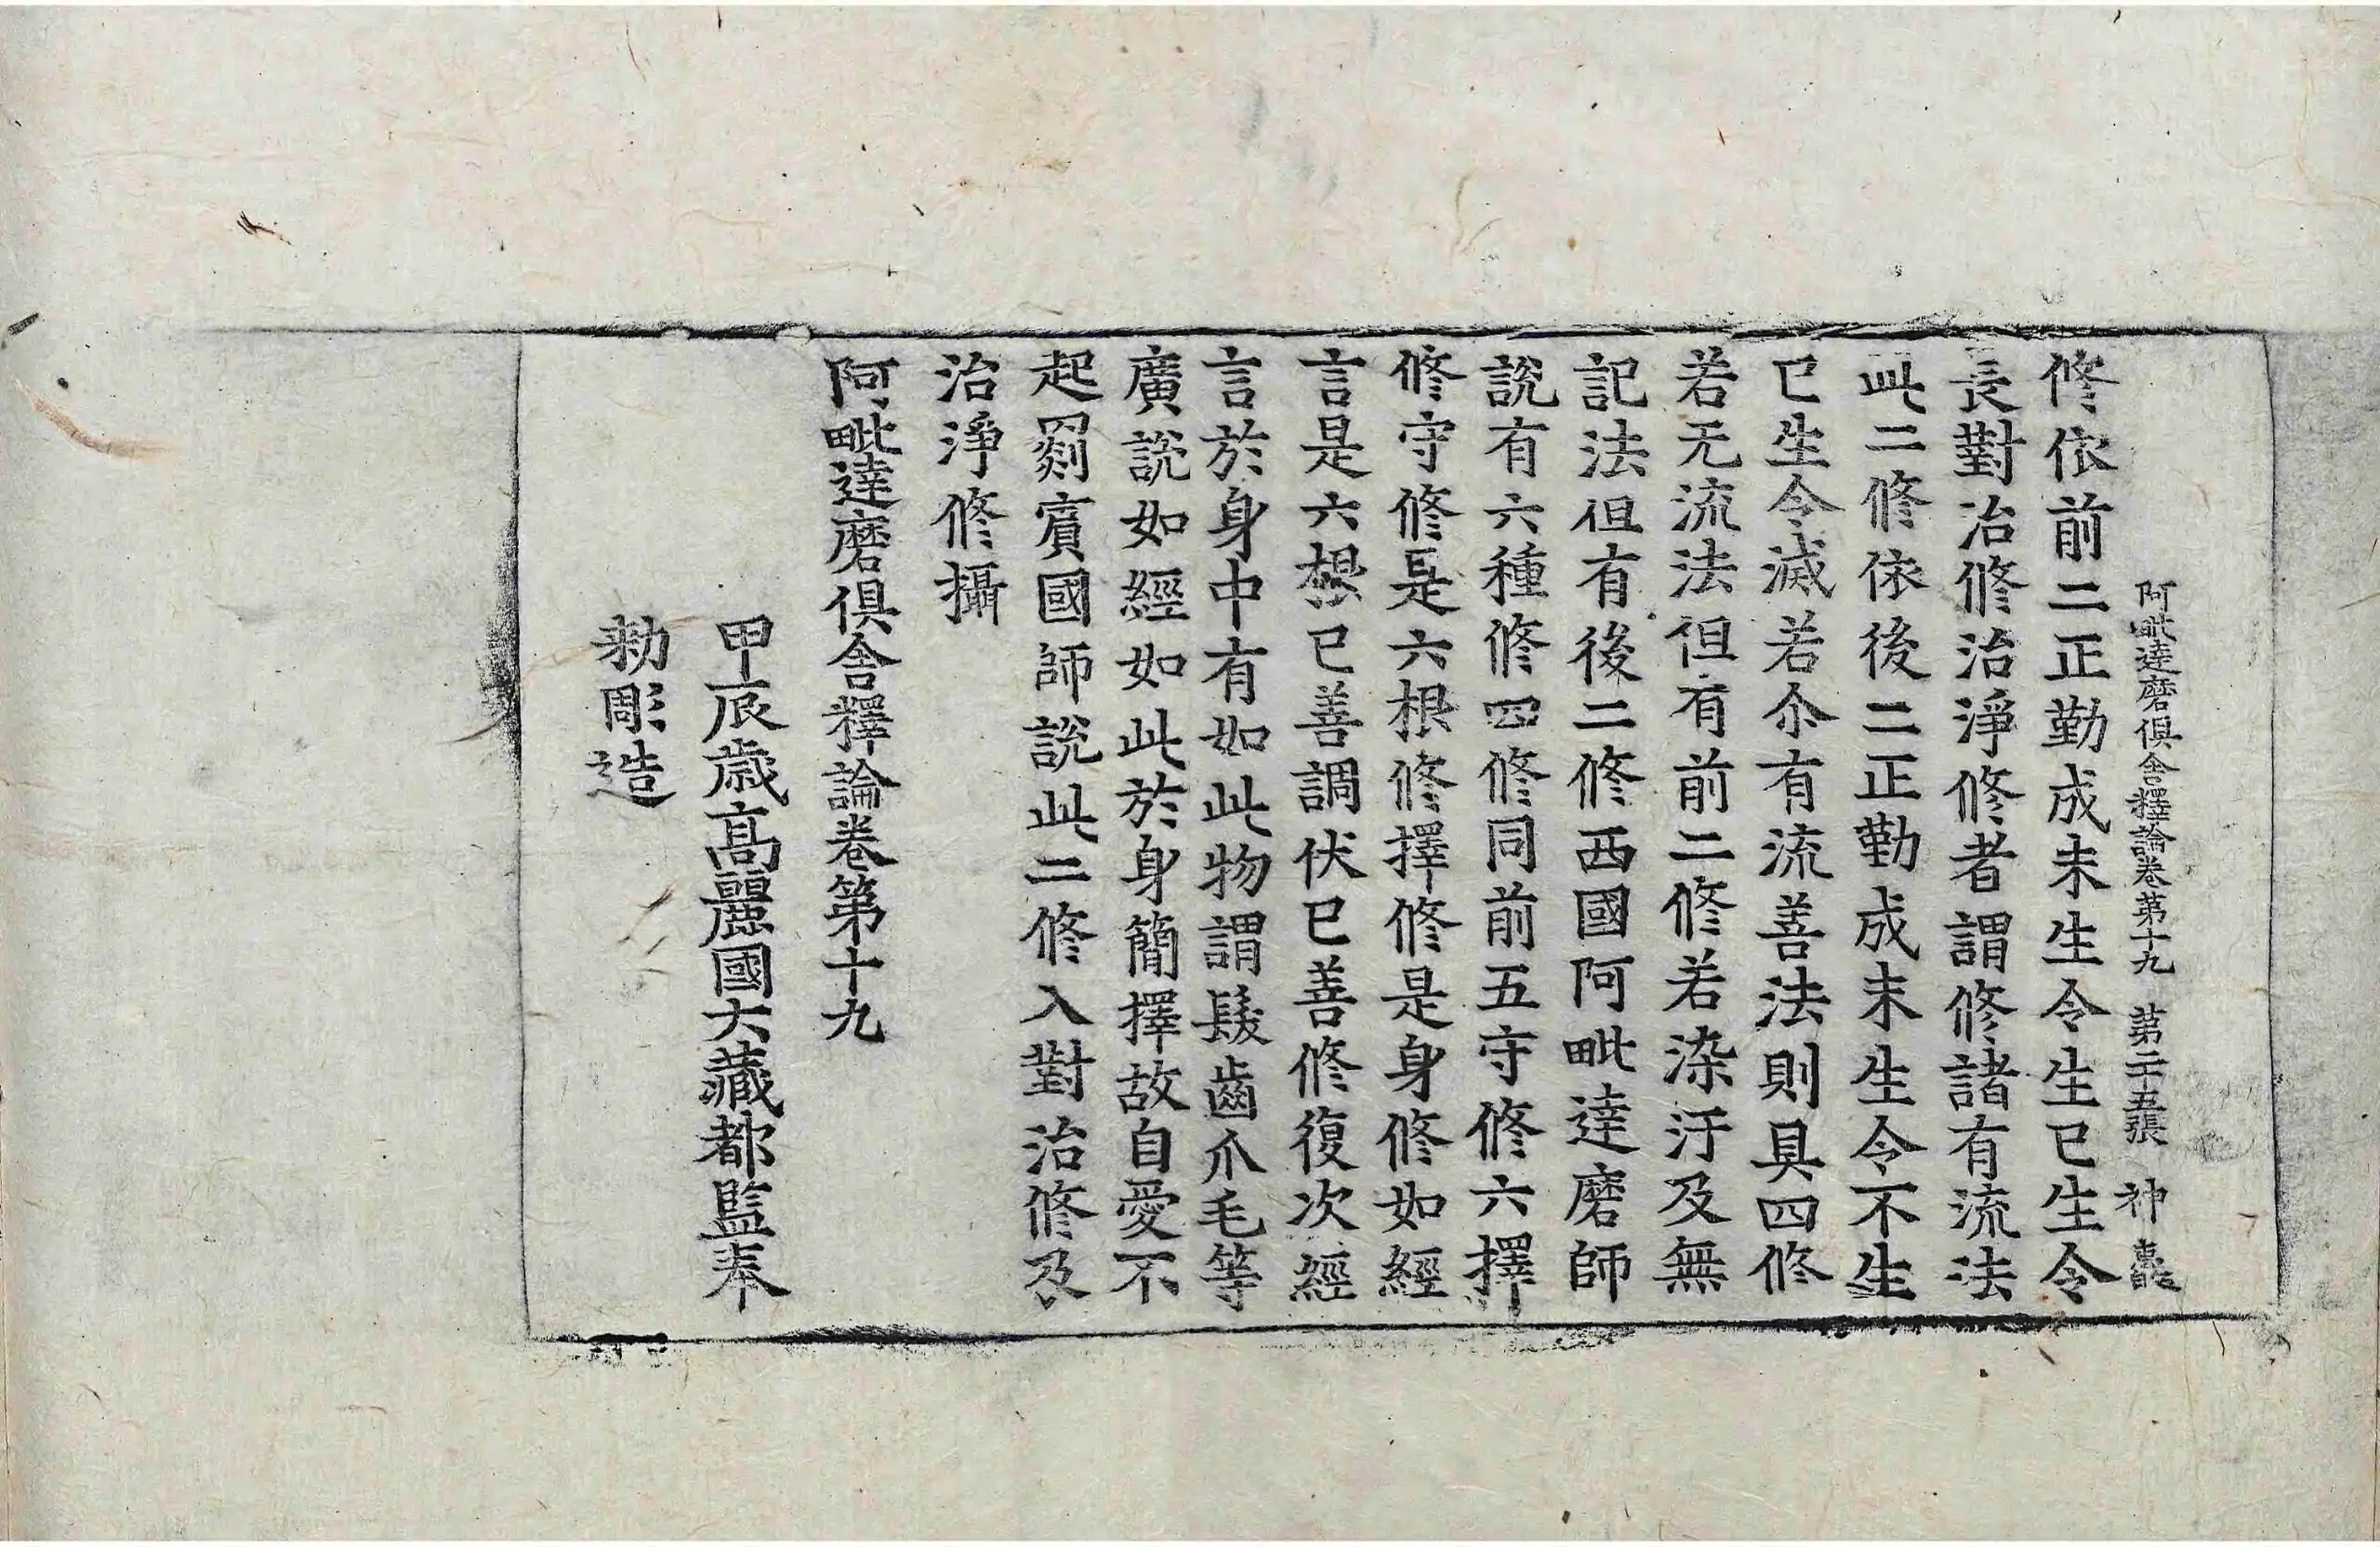 阿毗達磨俱舍釋論卷第十九 第二十五張 神
修依前二正勤成未生令生已生令
長對治修治淨修者謂修諸有流法
此二修依後二正勤成未生令不生
已生令滅若尒有流善法則具四修
若无流法但有前二修若染汙及無
記法但有後二修西國阿毗達磨師
說有六種修四修同前五守修六擇
修守修是六根修擇修是身修如經
言是六根已善調伏已善修復次經
言於身中有如此物謂髮齒爪毛等
廣說如經如此於身簡擇故自愛不
起罽賓國師說此二修入對治修及
治淨修攝
阿毗達磨俱舍釋論卷第十九
甲辰歲高麗國大藏都監奉
勑彫造